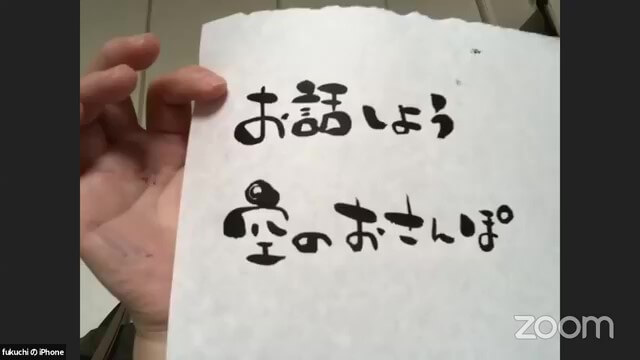 お話しよう
空のおさんぽ
zoom
fukuchi の iPhone